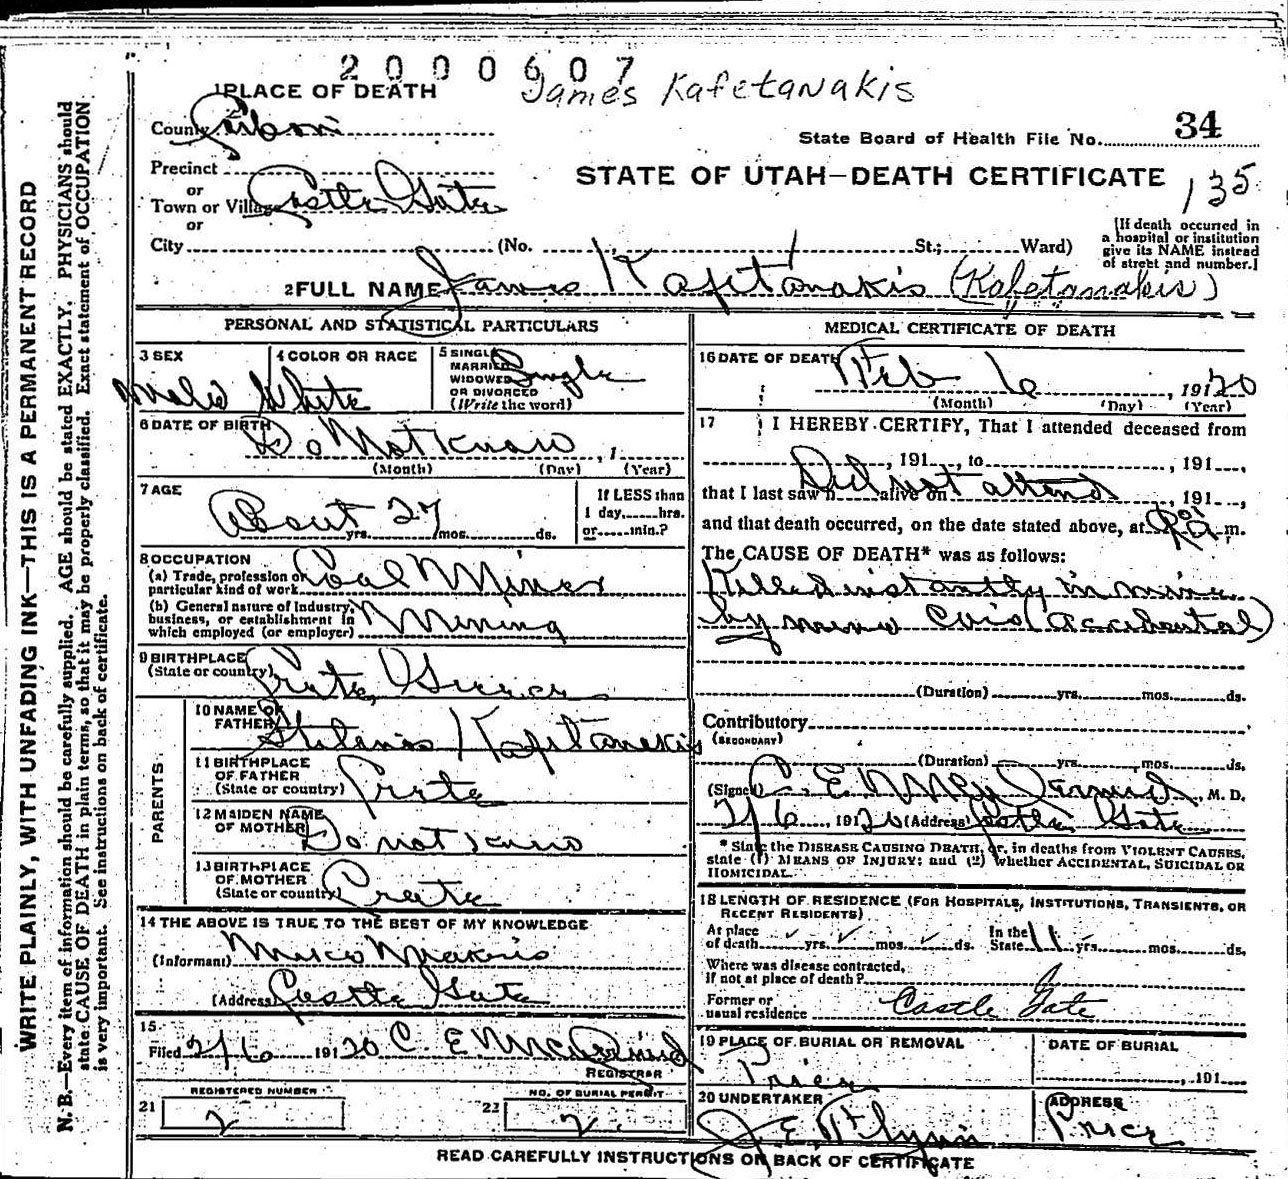 2000607
James Kafetanakis
1 PLACE OF DEATH
County Carbon
State Board of Health File No. 34
Precinct
or
STATE OF UTAH—DEATH CERTIFICATE
135
Town or Village Castle Gate
or
City (No. St.; Ward)
[If death occurred in a hospital or institution give its NAME instead of street and number.]
2 FULL NAME James Kafitanakis (Kafetanakis)
PERSONAL AND STATISTICAL PARTICULARS
3 SEX Male
4 COLOR OR RACE White
5 SINGLE MARRIED WIDOWED OR DIVORCED (Write the word) Single
6 DATE OF BIRTH Do Not Know, 1
(Month) (Day) (Year)
7 AGE About 27 yrs. mos. ds.
If LESS than 1 day, hrs. or min.?
8 OCCUPATION
(a) Trade, profession or particular kind of work Coal Miner
(b) General nature of Industry, business, or establishment in which employed (or employer) Mining
9 BIRTHPLACE (State or country) Crete, Greece
PARENTS
10 NAME OF FATHER Kafitanekis
11 BIRTHPLACE OF FATHER (State or country) Crete
12 MAIDEN NAME OF MOTHER Do not know
13 BIRTHPLACE OF MOTHER (State or country) Crete
14 THE ABOVE IS TRUE TO THE BEST OF MY KNOWLEDGE
(Informant)
(Address) Castle Gate
15
Filed 2/6 1920 C. E. McDermid
REGISTRAR
REGISTERED NUMBER
21 2
NO. OF BURIAL PERMIT
22 2.
MEDICAL CERTIFICATE OF DEATH
16 DATE OF DEATH Feb 6, 1920
(Month) (Day) (Year)
17 I HEREBY CERTIFY, That I attended deceased from
, 191 , to , 191 ,
that I last saw h alive on , 191 ,
Did not attend
and that death occurred, on the date stated above, at m.
The CAUSE OF DEATH* was as follows:
Killed instantly in mine
by mine (accidental)
(Duration) yrs. mos. ds.
Contributory
(SECONDARY)
(Duration) yrs. mos. ds.
(Signed) C. E. McDermid, M. D.
2/6, 1920 (Address) Castle Gate
* State the DISEASE CAUSING DEATH, or, in deaths from VIOLENT CAUSES, state (1) MEANS OF INJURY; and (2) whether ACCIDENTAL, SUICIDAL OR HOMICIDAL.
18 LENGTH OF RESIDENCE (FOR HOSPITALS, INSTITUTIONS, TRANSIENTS, OR RECENT RESIDENTS)
At place of death yrs. mos. ds. In the State 11 yrs. mos. ds.
Where was disease contracted, If not at place of death?
Former or usual residence Castle Gate
19 PLACE OF BURIAL OR REMOVAL Price
DATE OF BURIAL , 191
20 UNDERTAKER J. E. Flynn
ADDRESS Price
READ CAREFULLY INSTRUCTIONS ON BACK OF CERTIFICATE
WRITE PLAINLY, WITH UNFADING INK—THIS IS A PERMANENT RECORD
N. B.—Every item of information should be carefully supplied. AGE should be stated EXACTLY. PHYSICIANS should
state CAUSE OF DEATH in plain terms, so that it may be properly classified. Exact statement of OCCUPATION
is very important. See instructions on back of certificate.